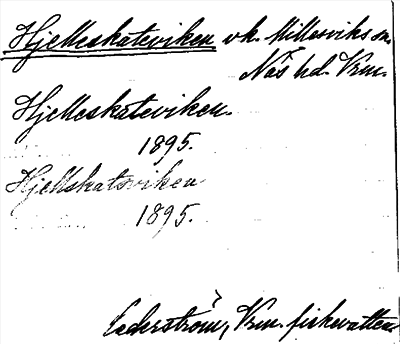 Hjelleskateviken vk. Millesviks sn.
Näs hd. Vrm.
Hjelleskateviken.
1895.
Hjellskatsviken
1895.
Cederström, Vrm. fiskevatten